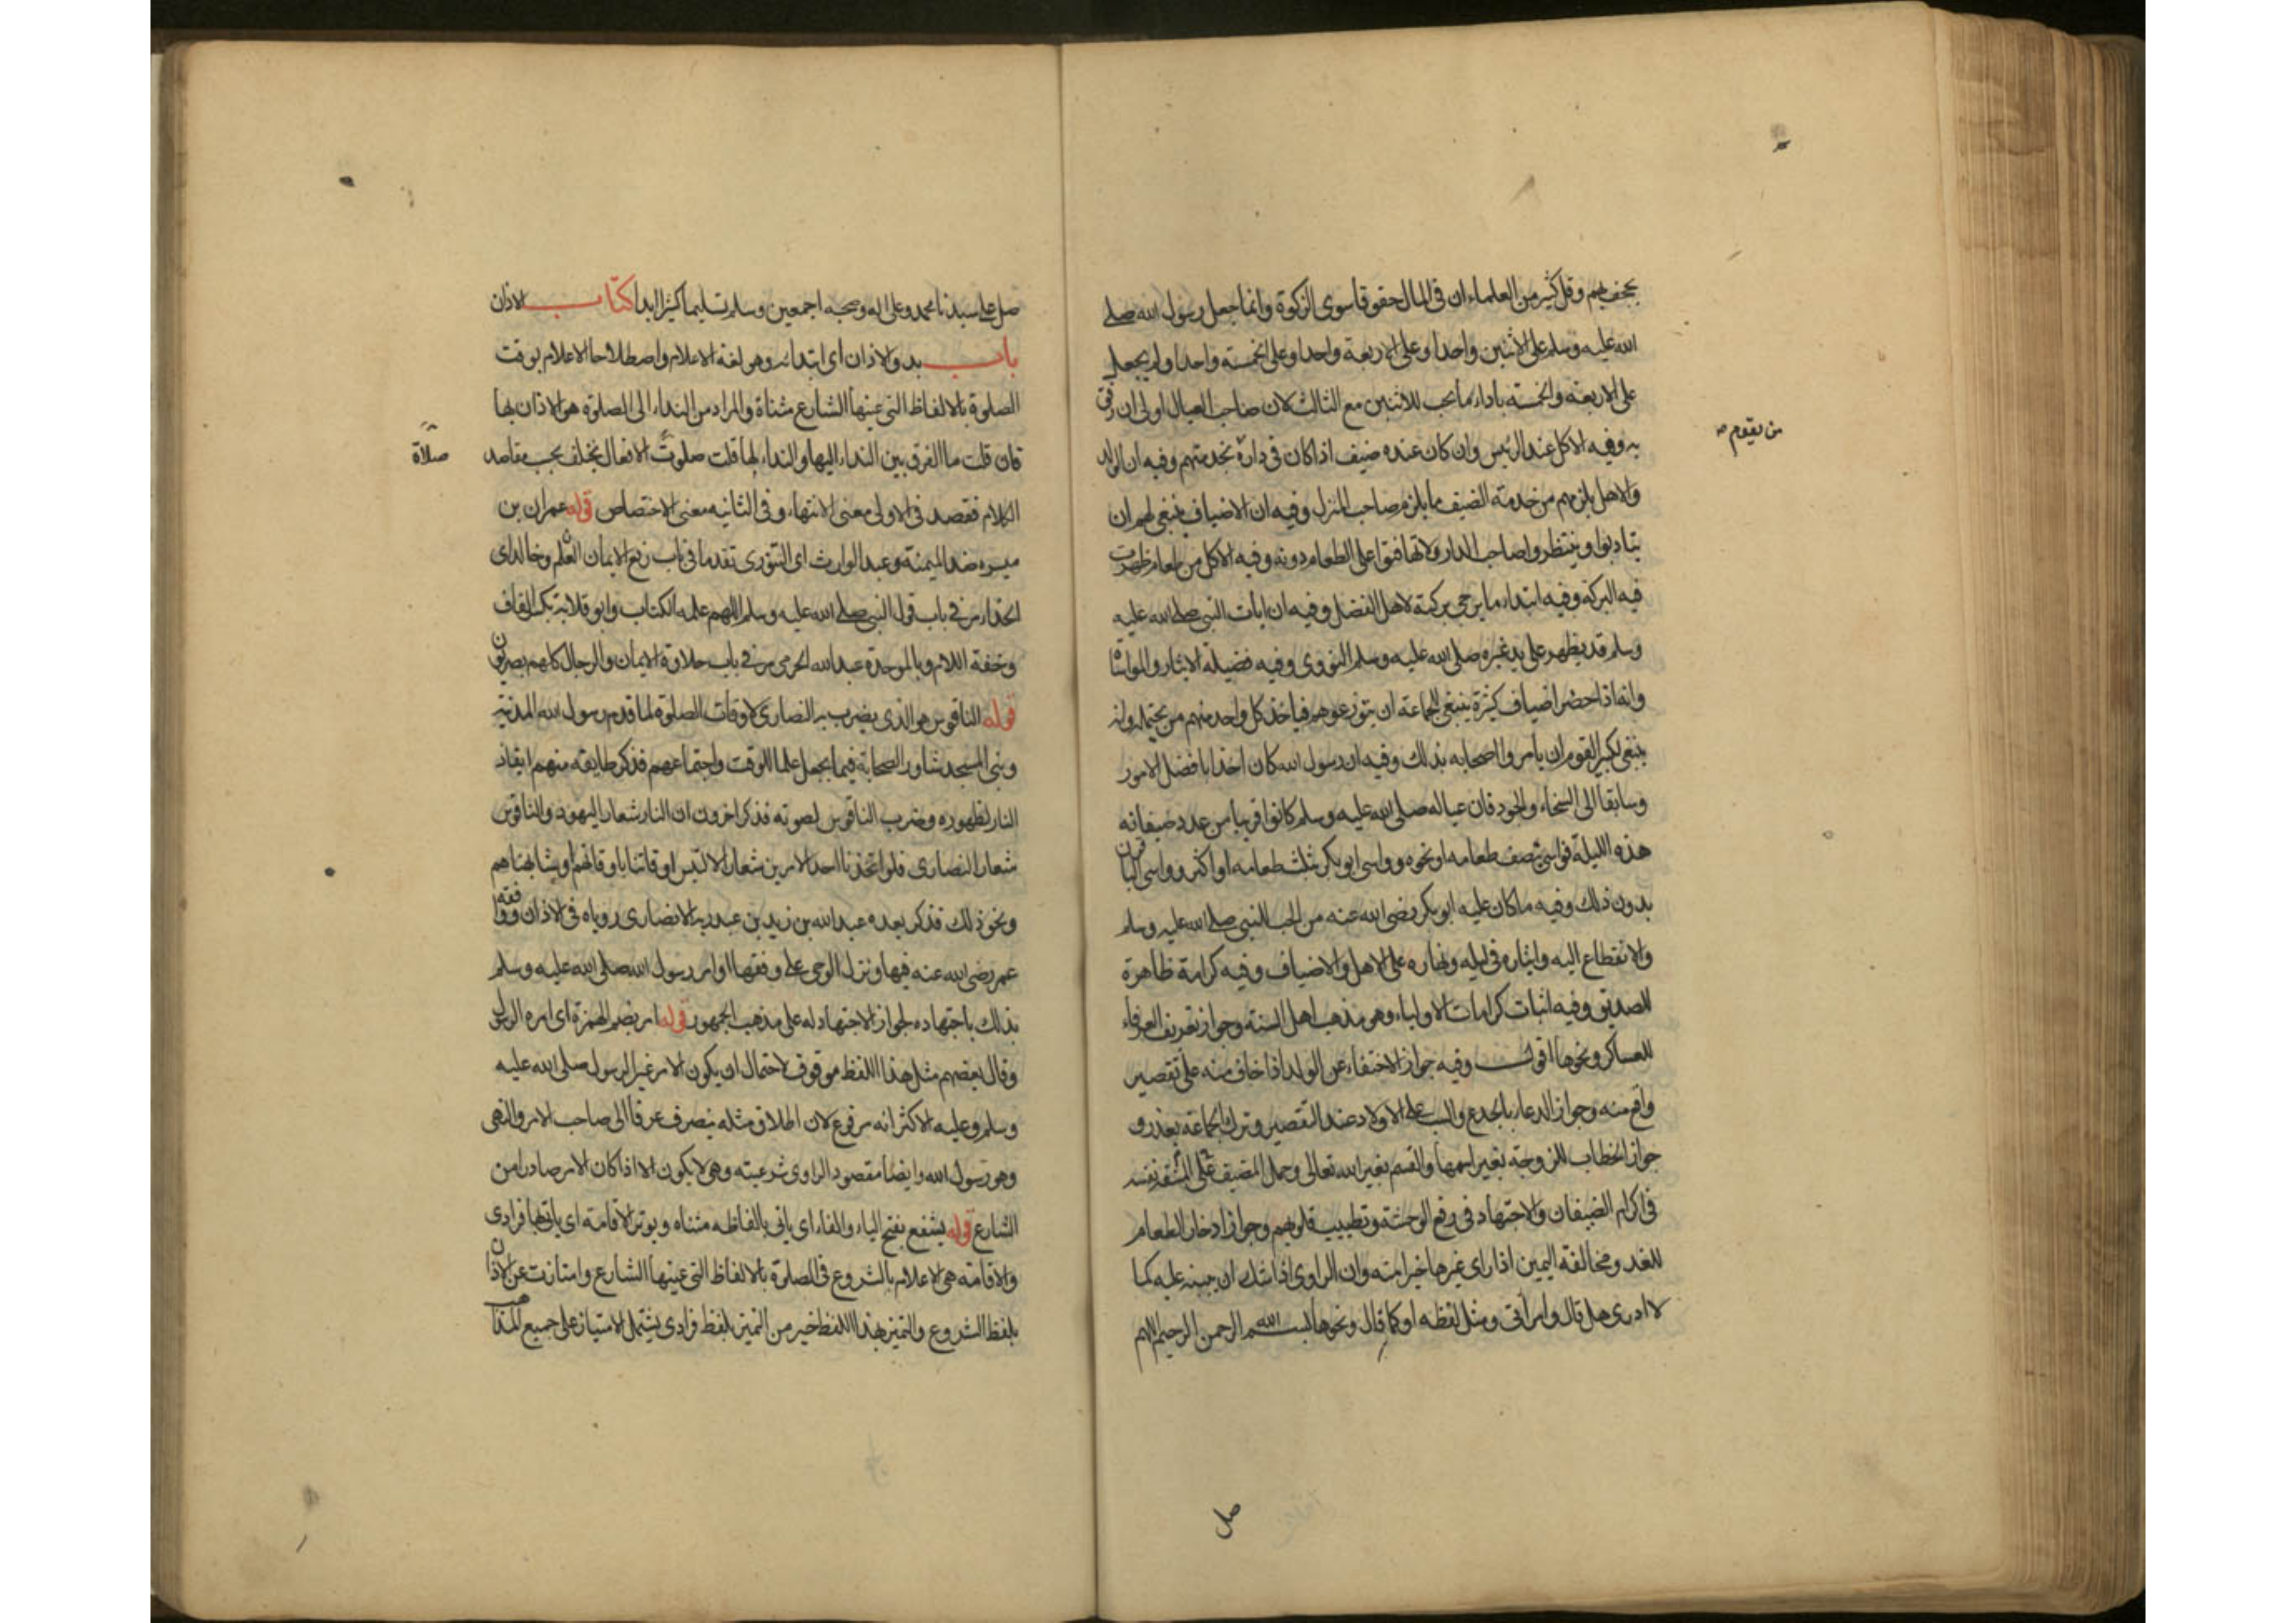 يجحف بهم وقال كثير من العلماء ان في المال حقوقا سوى الزكوة وانما جعل رسول الله صلى
الله عليه وسلم على الاثنين واحدا وعلى الاربعة واحدا وعلى الخمسة واحدا ولم يجعل
على الاربعة والخمسة باداء ما يجب للاثنين مع الثالث لان صاحب العيال اولى ان رفق
به وفيه الاكل عند الرئيس وان كان عنده ضيف اذا كان في داره نجدمتهم وفيه ان الولد
من يقوم
والاهل يلزمهم من خدمة الضيف ما يلزم صاحب المنزل وفيه ان الاضياف ينبغي لهم ان
يتادبوا وينتظروا صاحب الدار ولا تهافتوا على الطعام دونه وفيه الاكل من طعام ظهرت
فيه البركة وفيه ابتداء ما يرجى بركته لاهل الفضل وفيه ان ايات النبي صلى الله عليه
وسلم قد يظهر على يد غيره صلى الله عليه وسلم النووى وفيه فضيلة الايثار والمواساة
وانه اذا حضر اضياف كثيرة ينبغي للجماعة ان يتوزعوهم فياخذ كل واحد منهم من يحتمله وانه
ينبغي لكبير القوم ان يأمر اصحابه بذلك وفيه ان رسول الله كان اخذا بافضل الامور
وسابقا الى السخاء والجود فان عياله صلى الله عليه وسلم كانوا قريبا من عدد ضيفانه
هذه الليلة فواسى بنصف طعامه او نحوه وواسى ابو بكر بثلث طعامه او اكثر وواسى الباقون
بدون ذلك وفيه ما كان عليه ابو بكر رضي الله عنه من الحب للنبي صلى الله عليه وسلم
والانقطاع اليه وايثاره في ليله ونهاره على الاهل والاضياف وفيه كرامة ظاهرة
للصديق وفيه اثبات كرامات الاولياء وهو مذهب اهل السنة وجواز تعريف العرفاء
للعساكر ونحوها اقول وفيه جواز الاختفاء عن الولد اذا خاف منه على تقصير
واقع منه وجواز الدعاء بالجدع والسب على الاولاد عند التقصير وترك الجماعة بعذر و
جواز الخطاب للزوجة بغير اسمها والقسم بغير الله تعالى وحمل المضيف على المشقة نفسه
في اكرام الضيفان والاجتهاد في رفع الوحشة وتطييب قلوبهم وجواز ادخار الطعام
للغد ومخالفة اليمين اذا راى غيرها خيرا منه وان الراوى اذا شك ان يبينه عليه كما
لا ادرى هل قال وامرأتي ومثل لفظه او كما قال ونحوها بسم الله الرحمن الرحيم اللهم
صل
صل على سيدنا محمد وعلى اله وصحبه اجمعين وسلم تسليما كثيرا ابدا كتاب الاذان
باب بدو الاذان اى ابتدائه وهو لغة الاعلام واصطلاحا الاعلام بوقت
الصلوة بالالفاظ التي عينها الشارع مثناة والمراد من النداء الى الصلوة هو الاذان بها
فان قلت ما الفرق بين النداء اليها والنداء لها قلت صلوت الافعال يختلف بحسب مقاصد
صلاة
الكلام فقصد في الاولى معنى الانتهاء وفي الثانيه معنى الاختصاص قوله عمران بن
ميسره ضد الميمنة وعبد الوارث اى التنورى تقدما في باب رفع الايمان العلم وخالد اى
الحذاء مر في باب قول النبي صلى الله عليه وسلم اللهم علمه الكتاب وابو قلابة بكسر القاف
وخفة اللام وبالموحدة عبد الله الجرمى مر في باب حلاوة الايمان والرجال كلهم بصريون
قوله الناقوس هو الذى يضرب به النصارى لاوقات الصلوة لما قدم رسول الله المدينة
وبنى المسجد شاور الصحابة فيما يجعل علما للوقت واجتماعهم فذكر طايفه منهم ايقاد
النار لظهوره وضرب الناقوس لصوته فذكر اخرون ان النار شعار اليهود والناقوس
شعار النصارى فلو اتخذنا احد الامرين شعارا لالتبس اوقاتنا باوقاتهم او شابهناهم
ونحو ذلك فذكر بعده عبد الله بن زيد بن عبد ربه الانصارى روياه في الاذان ووافقه
عمر رضي الله عنه فيها ونزل الوحى على وفقها او امر رسول الله صلى الله عليه وسلم
بذلك باجتهاده لجواز الاجتهاد له على مذهب الجمهور قوله امر بضم الهمزة اى امره الرسول
وقال بعضهم مثل هذا اللفظ موقوف لاحتمال ان يكون الامر غير الرسول صلى الله عليه
وسلم وعليه الاكثر انه مرفوع لان اطلاق مثله ينصرف عرفا الى صاحب الامر والنهى
وهو رسول الله وايضا مقصود الراوى شرعيته وهى لا يكون الا اذا كان الامر صادرا من
الشارع قوله يشفع بفتح الياء والفاء اى ياتى بالفاظه مثناه ويوتر الاقامة اى ياتي بها فرادى
والاقامة هى الاعلام بالشروع في الصلوة بالالفاظ التي عينها الشارع وامتازت عن الاذان
بلفظ الشروع والتميز بهذا اللفظ خير من التميز بلفظ فرادى يشتمل الامتياز على جميع المذاهب